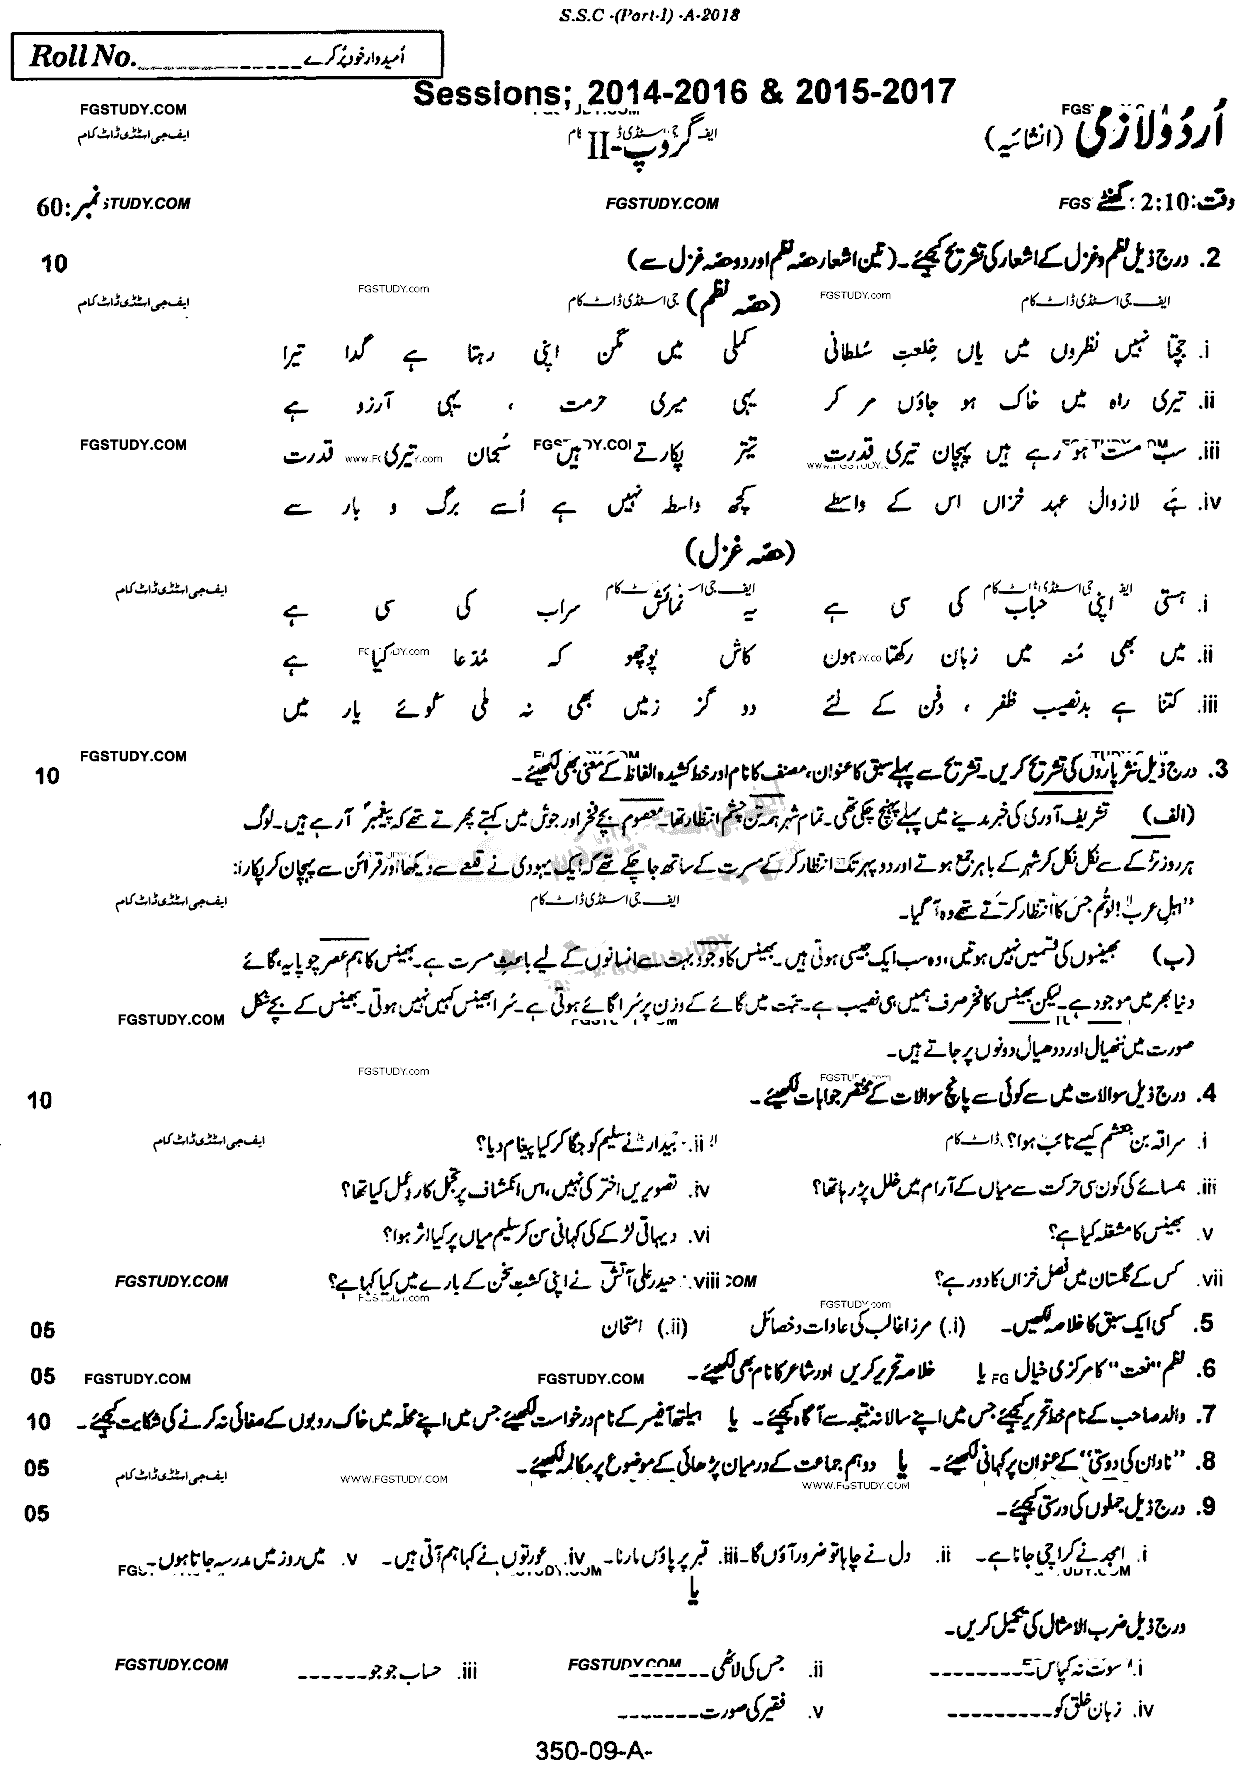 S.S.C -(Part-I) -A-2018
Roll No._______________ اُمیدوار خود پُر کرے
Sessions; 2014-2016 & 2015-2017
FGSTUDY.COM
اُردُو لازمی (انشائیہ) ایف جی اسٹڈی ڈاٹ کام گروپ-II ایف جی اسٹڈی ڈاٹ کام
وقت: 2:10 گھنٹے FGSTUDY.COM نمبر: 60
2. درج ذیل نظم و غزل کے اشعار کی تشریح کیجئے۔ (تین اشعار حصّہ نظم اور دو حصّہ غزل سے) 10
FGSTUDY.com FGSTUDY.com
ایف جی اسٹڈی ڈاٹ کام (حصّہ نظم) جی اسٹڈی ڈاٹ کام ایف جی اسٹڈی ڈاٹ کام
i. جچتا نہیں نظروں میں یاں خِلعتِ سُلطانی کملی میں مگن اپنی رہتا ہے گدا تیرا
ii. تیری راہ میں خاک ہو جاؤں مر کر یہی میری حرمت ، یہی آرزو ہے
iii. سب مست ہو رہے ہیں پہچان تیری قدرت تیتر پکارتے ہیں سُبحان تیری قدرت
FGSTUDY.COM
iv. ہے لازوال عہد خزاں اس کے واسطے کچھ واسطہ نہیں ہے اُسے برگ و بار سے
(حصّہ غزل)
ایف جی اسٹڈی ڈاٹ کام
i. ہستی اپنی حباب کی سی ہے یہ نمائش سراب کی سی ہے
ii. میں بھی مُنہ میں زبان رکھتا ہوں کاش پوچھو کہ مُدّعا کیا ہے
iii. کتنا ہے بدنصیب ظفر ، دفن کے لئے دو گز زمیں بھی نہ ملی کوئے یار میں
FGSTUDY.COM
3. درج ذیل نثر پاروں کی تشریح کریں۔ تشریح سے پہلے سبق کا عنوان، مصنف کا نام اور خط کشیدہ الفاظ کے معنی بھی لکھیئے۔ 10
(الف) تشریف آوری کی خبر مدینے میں پہلے پہنچ چکی تھی۔ تمام شہر ہمہ تن چشمِ انتظار تھا۔ معصوم بچے فخر اور جوش میں کہتے پھرتے تھے کہ پیغمبر آ رہے ہیں۔ لوگ
ہر روز تڑکے سے نکل نکل کر شہر کے باہر جمع ہوتے اور دوپہر تک انتظار کر کے حسرت کے ساتھ جا چکے تھے کہ ایک یہودی نے قلعے سے دیکھا اور قرائن سے پہچان کر پکارا:
"اہلِ عرب! لو تُم جس کا انتظار کرتے تھے وہ آ گیا۔ ایف جی اسٹڈی ڈاٹ کام ایف جی اسٹڈی ڈاٹ کام
(ب) بھینسوں کی قسمیں نہیں ہوتیں، وہ سب ایک جیسی ہوتی ہیں۔ بھینس کا وجود بہت سے انسانوں کے لیے باعثِ مسرت ہے۔ بھینس کا ہم عصر چوپایہ، گائے
دنیا بھر میں موجود ہے۔ لیکن بھینس کا فخر صرف ہمیں ہی نصیب ہے۔ تبت میں گائے کے وزن پر سُرا گائے ہوتی ہے۔ سُرا بھینس کہیں نہیں ہوتی۔ بھینس کے بچے شکل
FGSTUDY.COM
صورت میں ننھیال اور ددھیال دونوں پر جاتے ہیں۔
FGSTUDY.com
4. درج ذیل سوالات میں سے کوئی سے پانچ سوالات کے مختصر جوابات لکھیئے۔ 10
i. سراقہ بن جعشم کیسے تائب ہوا؟ ڈاٹ کام ii. بیدارا نے سلیم کو جگا کر کیا پیغام دیا؟ ایف جی اسٹڈی ڈاٹ کام
iii. ہمسائے کی کون سی حرکت سے میاں کے آرام میں خلل پڑ رہا تھا؟ iv. تصویریں اختر کی نہیں، اس انکشاف پر تجمل کا ردِعمل کیا تھا؟
v. بھینس کا مشغلہ کیا ہے؟ vi. دیہاتی لڑکے کی کہانی سن کر سلیم میاں پر کیا اثر ہوا؟
vii. کس کے گلستان میں فصلِ خزاں کا دور ہے؟ viii. حیدر علی آتش نے اپنی کشتِ سخن کے بارے میں کیا کہا ہے؟ FGSTUDY.COM
5. کسی ایک سبق کا خلاصہ لکھیں۔ (i.) مرزا غالب کی عادات و خصائل (ii.) امتحان 05
6. نظم "نعت" کا مرکزی خیال یا خلاصہ تحریر کریں اور شاعر کا نام بھی لکھیئے۔ FGSTUDY.COM FGSTUDY.COM 05
7. والد صاحب کے نام خط تحریر کیجئے جس میں اپنے سالانہ نتیجہ سے آگاہ کیجئے۔ یا ہیلتھ آفیسر کے نام درخواست لکھیئے جس میں اپنے محلہ میں خاک روبوں کے صفائی نہ کرنے کی شکایت کیجئے۔ 10
8. "نادان کی دوستی" کے عنوان پر کہانی لکھیئے۔ یا دو ہم جماعت کے درمیان پڑھائی کے موضوع پر مکالمہ لکھیئے۔ 05
WWW.FGSTUDY.COM WWW.FGSTUDY.COM ایف جی اسٹڈی ڈاٹ کام
9. درج ذیل جملوں کی درستی کیجئے۔ 05
i. امجد نے کراچی جانا ہے۔ ii. دل نے چاہا تو ضرور آؤں گا۔ iii. قبر پر پاؤں مارنا۔ iv. عورتوں نے کہا ہم آتی ہیں۔ v. میں روز میں مدرسہ جاتا ہوں۔
یا
درج ذیل ضرب الامثال کی تکمیل کریں۔
i. سوت نہ کپاس ---------- ii. جس کی لاٹھی --------- iii. حساب جو جو ------- FGSTUDY.COM
iv. زبانِ خلق کو ---------- v. فقیر کی صورت --------
350-09-A-